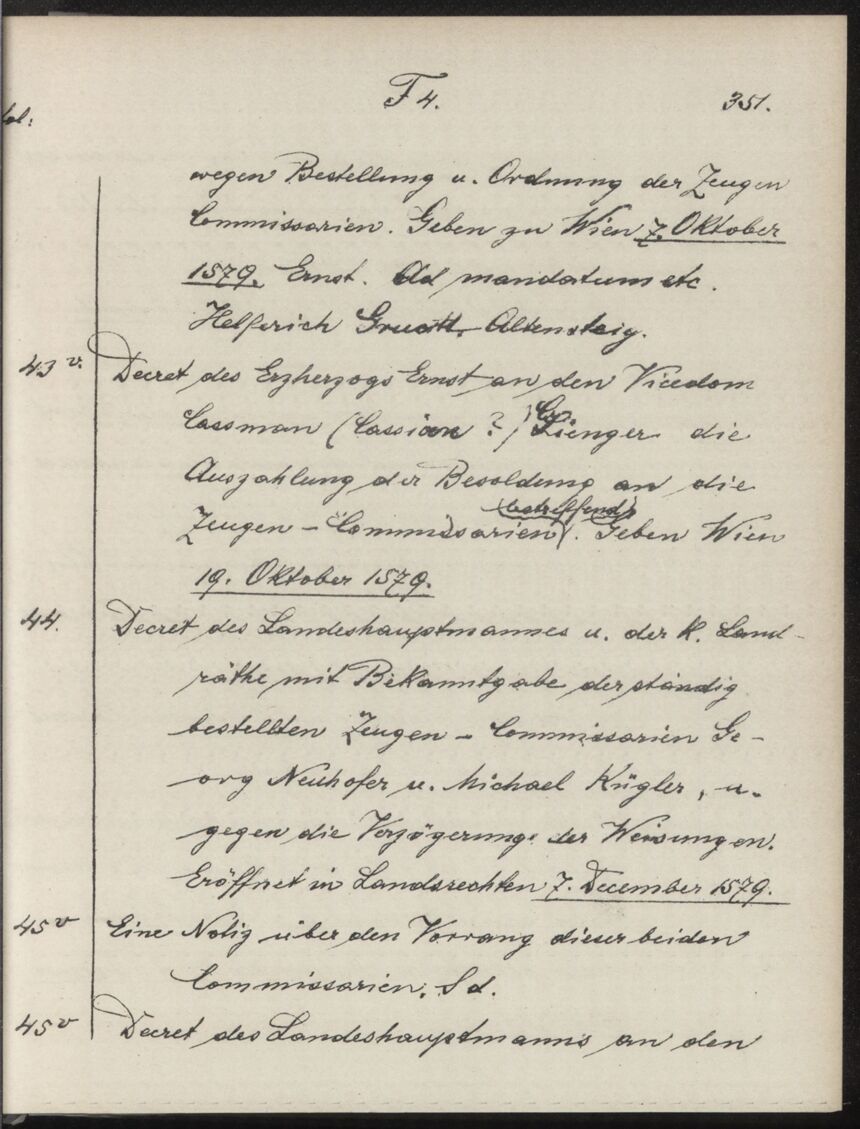 F 4. 351.
fol:
wegen Bestellung u. Ordnung der Zeugen
Commissarien. Geben zu Wien 7. Oktober
1579. Ernst. Ad mandatum etc.
Helferich Altensteig.
43 v. Decret des Erzherzogs Ernst an den Vicedom
Cassman (Cassian ?) die
Auszahlung der Besoldung an die
Zeugen - Commissarien (betreffend). Geben Wien
19. Oktober 1579.
44. Decret des Landeshauptmannes u. der k. Land-
räthe mit Bekanntgabe der ständig
bestellten Zeugen - Commissarien Ge-
org Neuhofer u. Michael Kügler, u.
gegen die Verzögerung der Weisungen.
Eröffnet in Landsrechten 7. December 1579.
45 v Eine Notiz über den Vorrang dieser beiden
Commissarien. S d.
45 v Decret des Landeshauptmanns an den